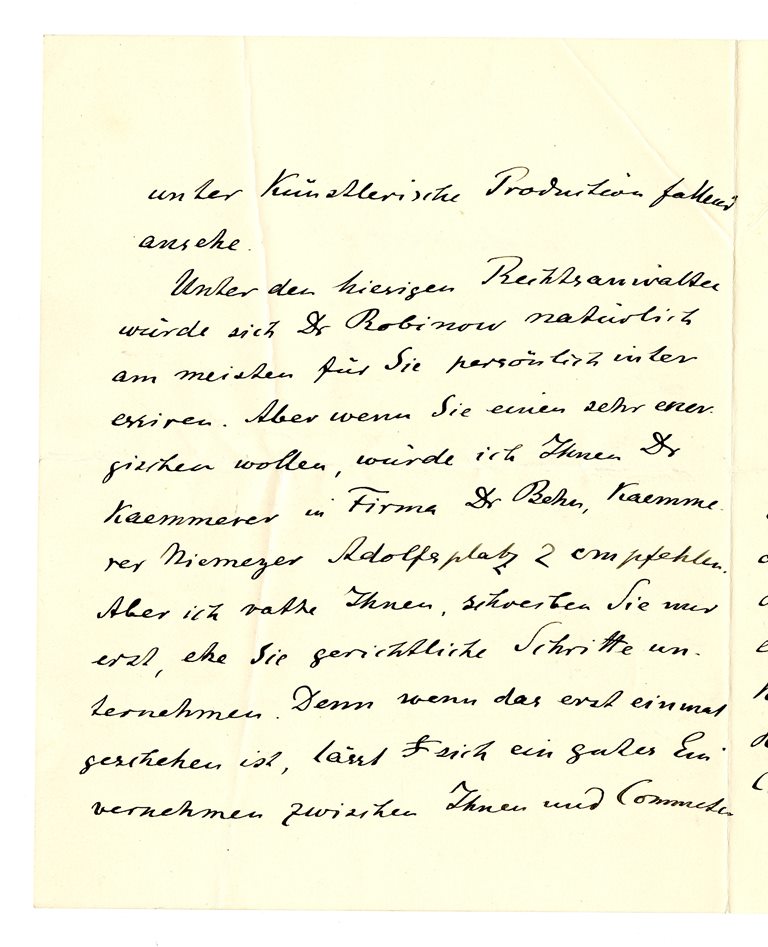 unter Künstlerische Production fallend
ansehe.
Unter den hiesigen Rechtsanwälten
würde sich Dr Robinow natürlich
am meisten für Sie persönlich inter
essiren. Aber wenn Sie einen sehr ener-
gischen wollen, würde ich Ihnen Dr
Kaemmerer in Firma Dr Behn, Kaemme-
rer Niemeyer Adolfsplatz 2 empfehlen.
Aber ich rathe Ihnen, schreiben Sie mir
erst, ehe Sie gerichtliche Schritte un-
ternehmen. Denn wenn das erst einmal
geschehen ist, lässt sich ein gutes Ein
vernehmen zwischen Ihnen und Commeter